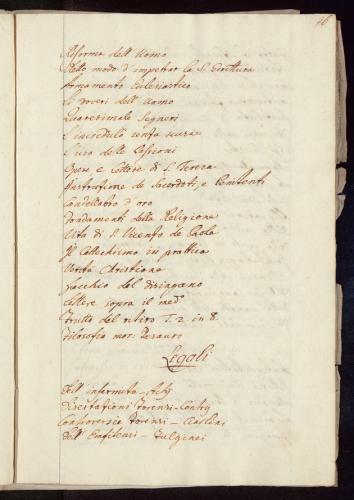 46
Riforma dell' Uomo
Dello modo d'impetrar la S. Scrittura
Armamento Eclesiastico
Li doveri dell' Uomo
Quaresimale Segneri
L'incredulo senza scusa
L'uso delle Passioni
Opere e Lettere di S. Teresa
Instruzione de Sacerdoti, e Penitenti
Candellabro d'oro
Fondamenti della Religione
Vita di S. Vicenzo de Paola
Il Cattechismo in prattica
Verità Cristiane
Specchio del disingano
Lettere sopra il med.º
Frutto del ritiro T. 2 in 8.
Filosofia mor: Tesauro
Legali
Dell' infermità
Decertationi Forensi
Controversie Forensi
Dell' Enfiteusi - Fulginei